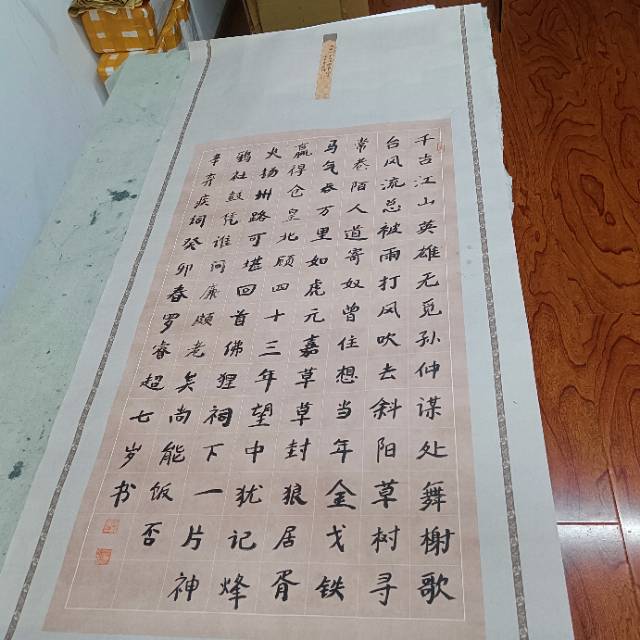 千古江山英雄无觅孙仲谋处舞榭歌
台风流总被雨打风吹去斜阳草树寻
常巷陌人道寄奴曾住想当年金戈铁
马气吞万里如虎元嘉草草封狼居胥
赢得仓皇北顾四十三年望中犹记烽
火扬州路可堪回首佛狸祠下一片神
鸦社鼓凭谁问廉颇老矣尚能饭否
辛弃疾词癸卯春罗睿超七岁书